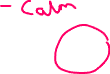 - Calm